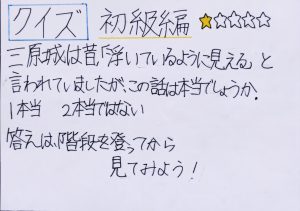 クイズ 初級編 ★☆☆☆☆
三原城は昔「浮いているように見える」と
言われていましたが、この話は本当でしょうか.
1本当 2本当ではない
答えは、階段を登ってから
見てみよう!